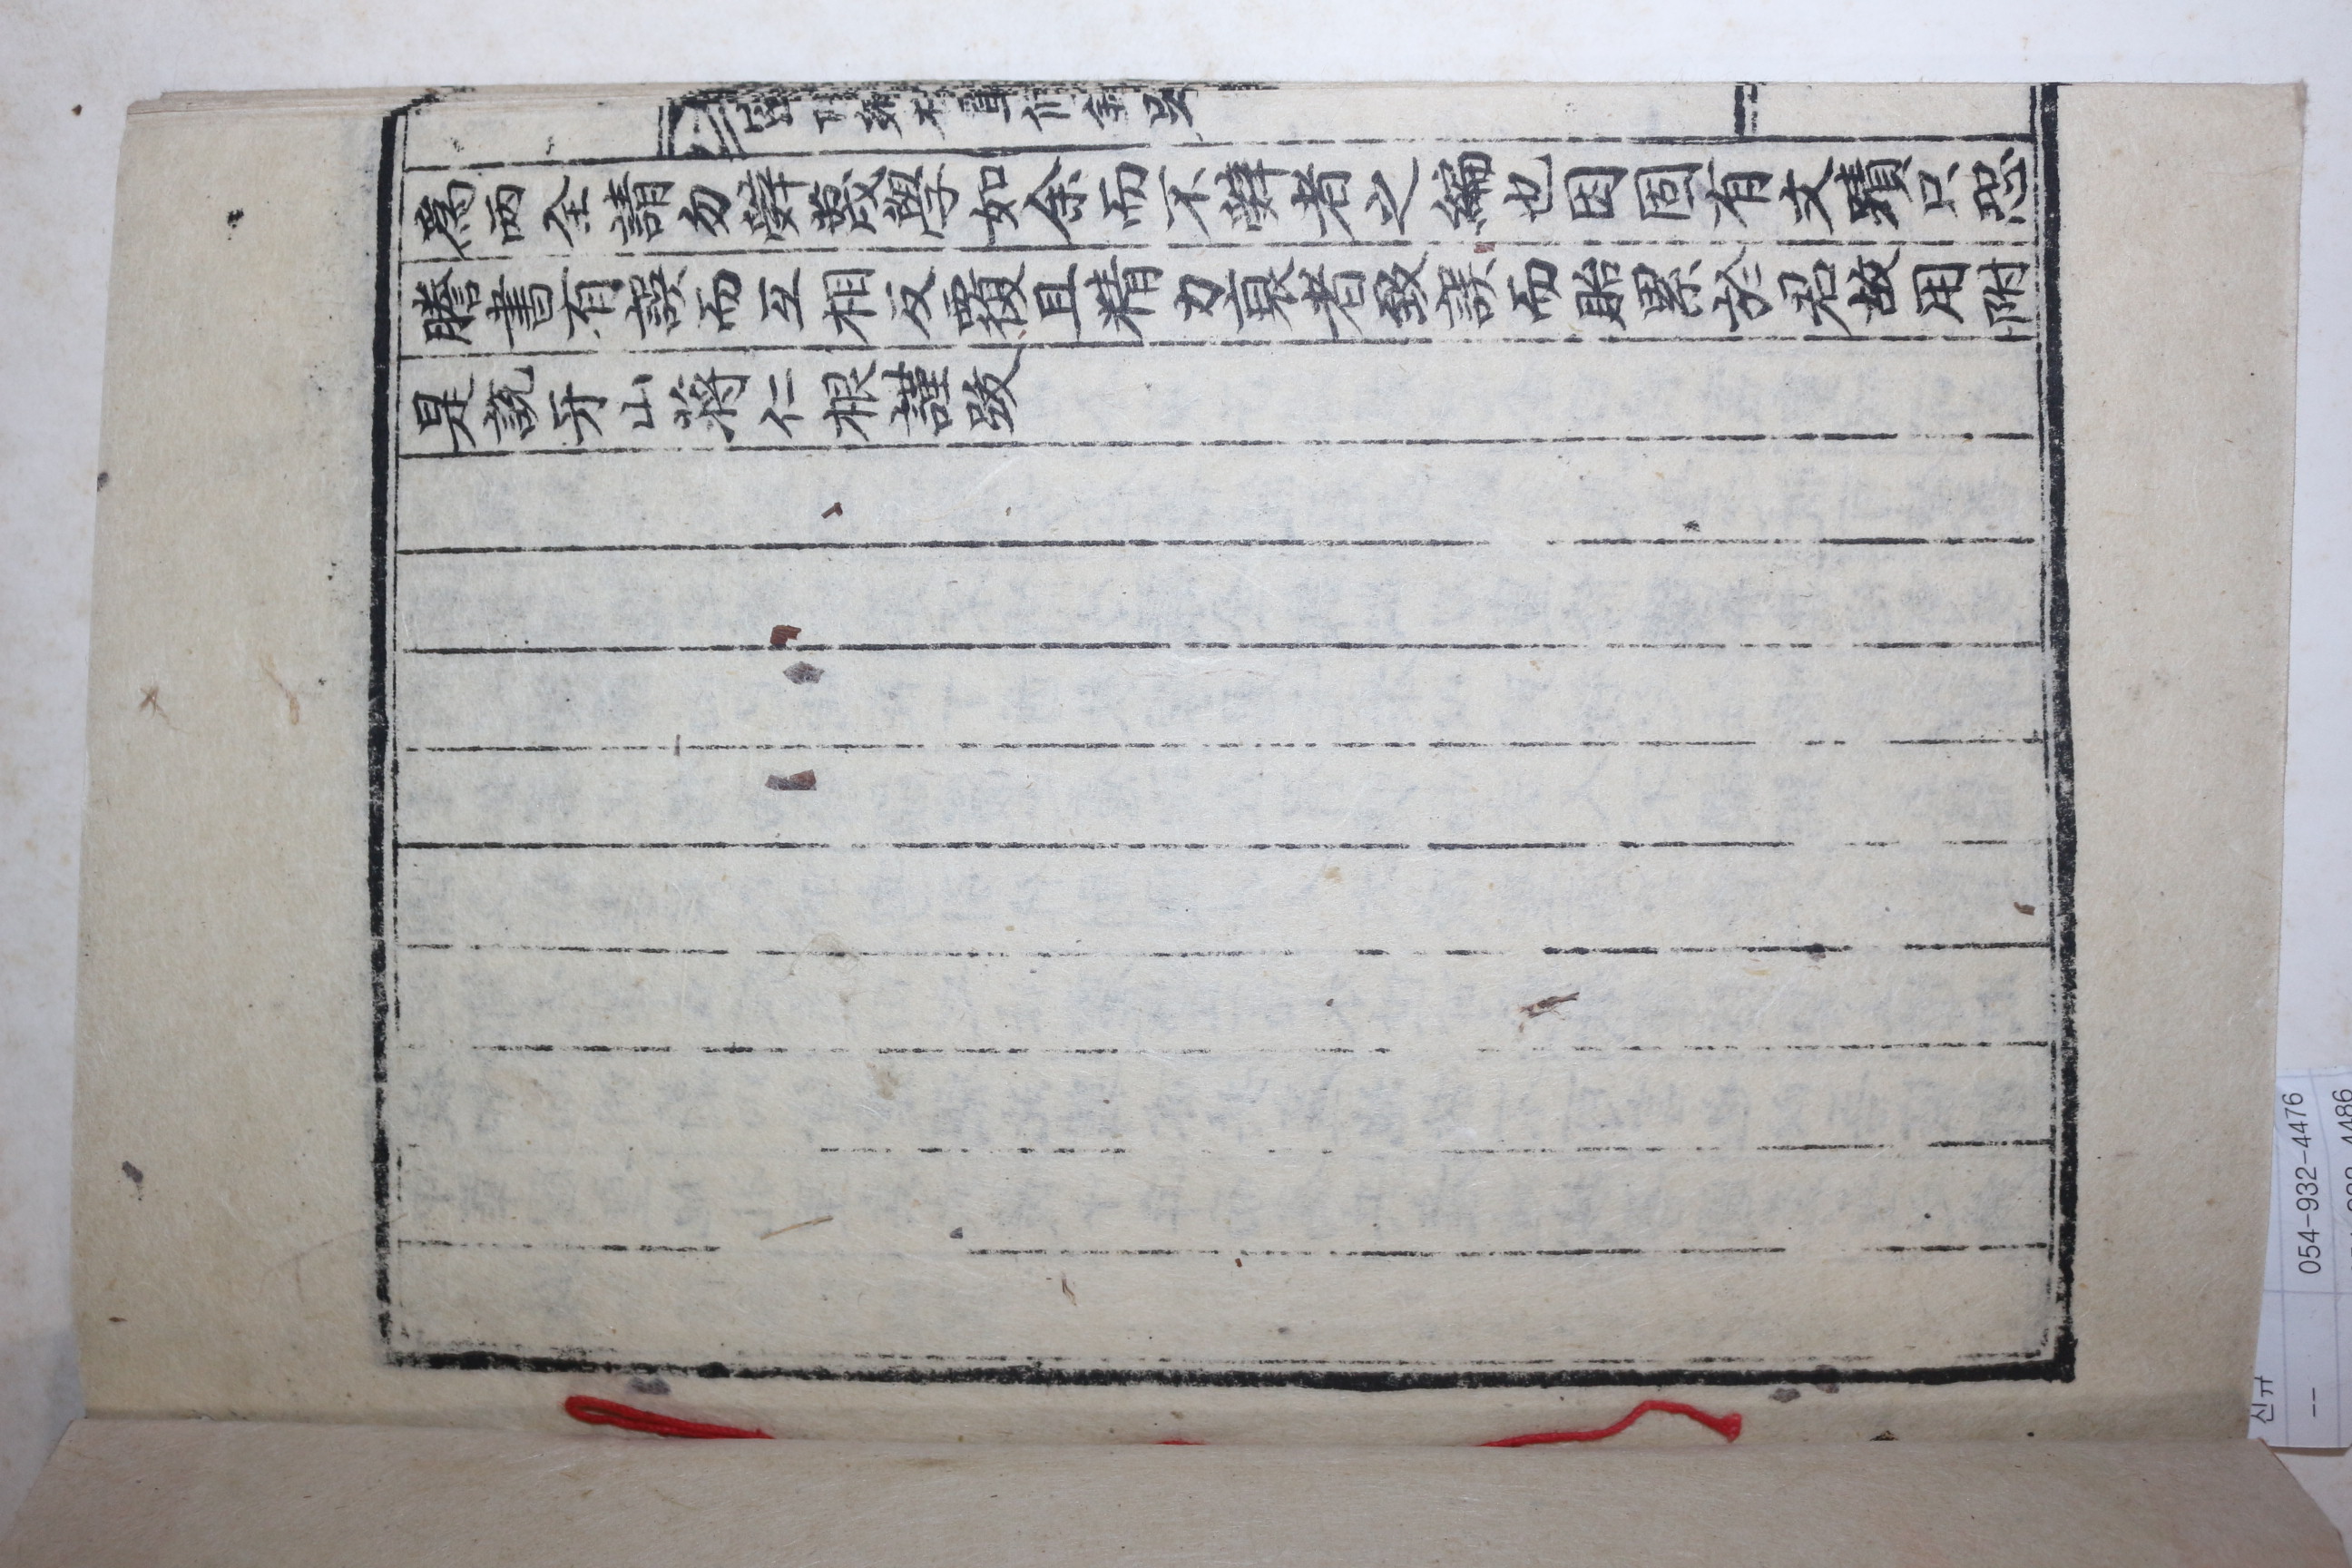 爲两全請勿辤蔑學如余而不辤者之編也因固有文蹟只恐
謄書有誤而互相反覆且精力衰者致誤而貽累於君故用附
是説牙山蔣仁根謹跋
신규
--
054-932-4476
4486